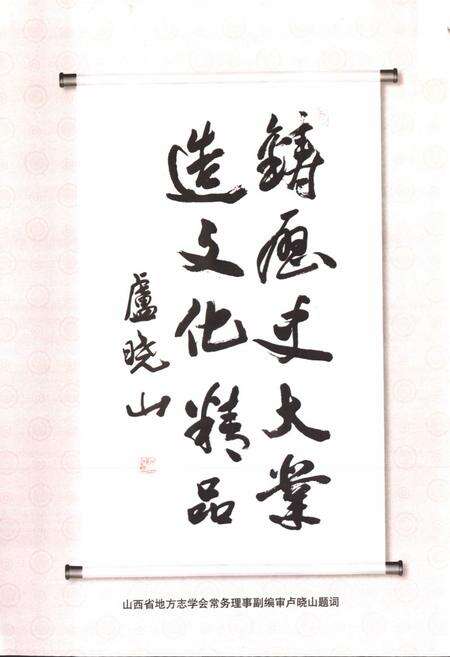 鑄歷史大業
造文化精品
盧晓山
山西省地方志学会常务理事副编审卢晓山题词